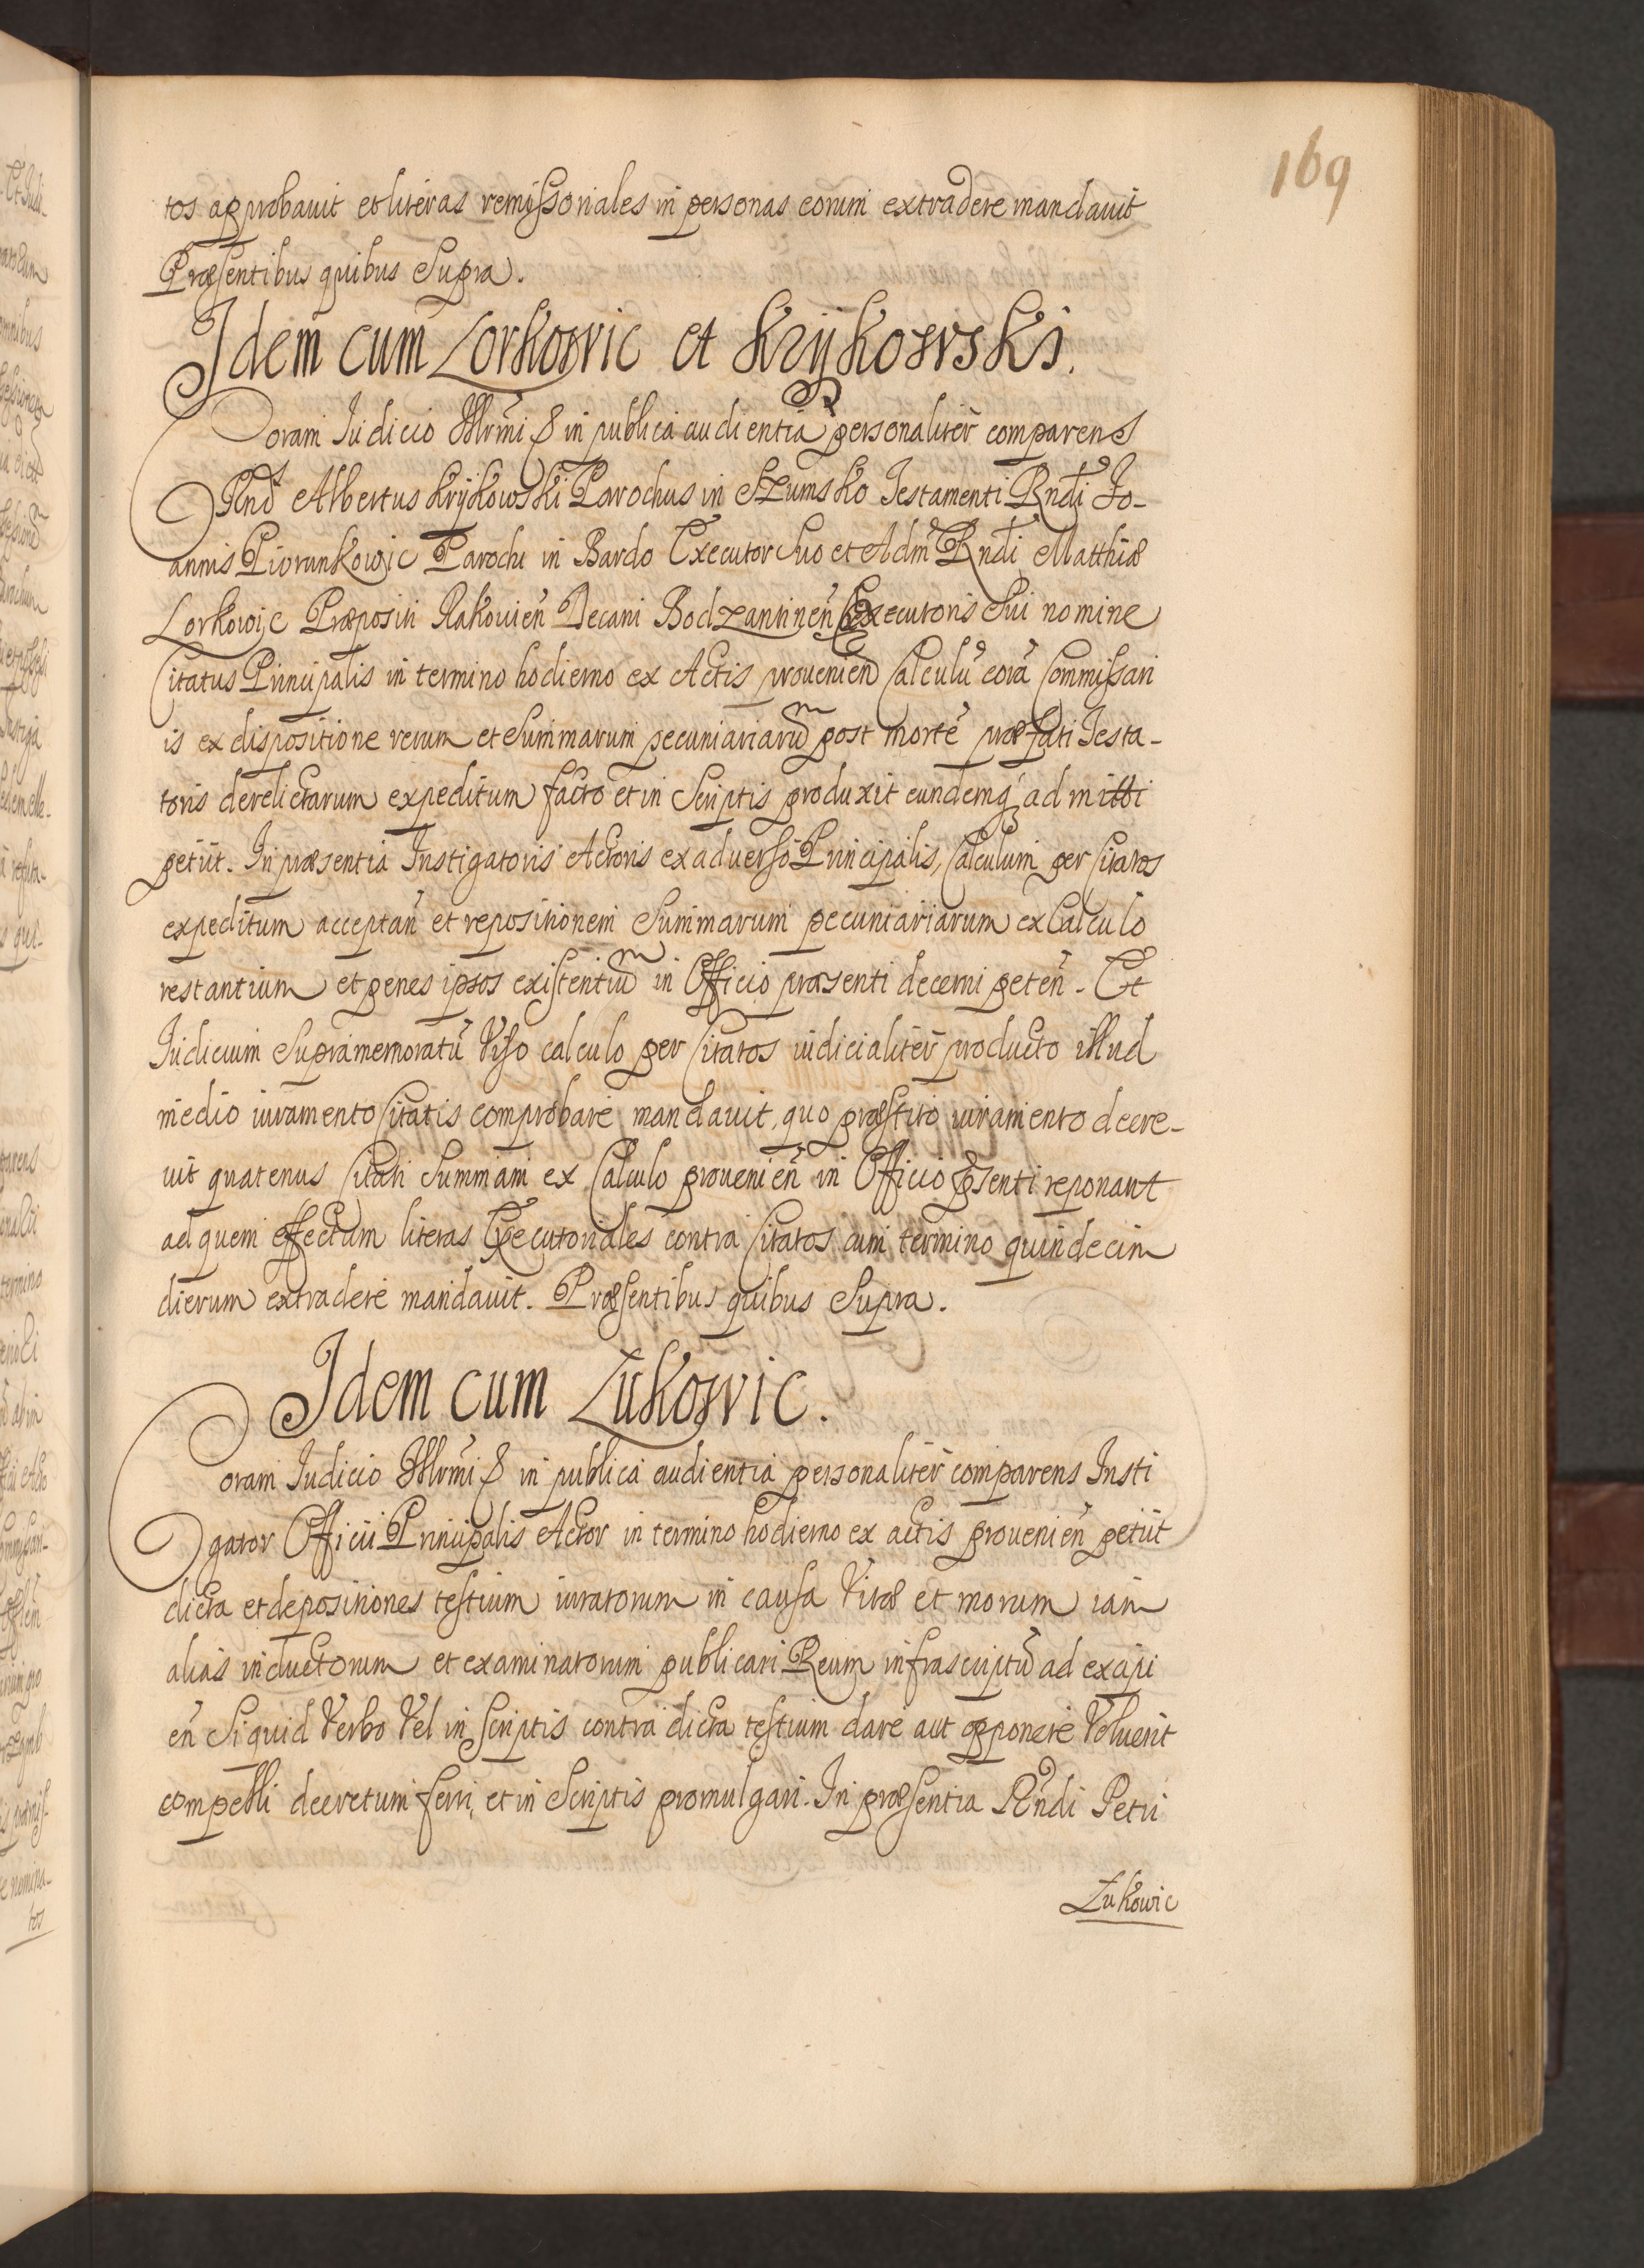 169
tos approbauit et literas remissoriales in personas eorum extradere mandauit
Præsentibus quibus Supra.
Idem cum Lorkowic et Krykowski.
Coram Iudicio Illrm̃i & in publica audientia personaliter comparens
Rnd̃ Albertus Krykowski Parochus in Szumsko Testamenti Rndĩ Jo-
annis Piorunkowic Parochi in Bardo Executor Suo et Adm̃ Rndĩ Matthiæ
Lorkowic Præpositi Rakouien̄ Decani Bodzantinen̄ Coexecutoris Sui nomine
Citatus Principalis in termino hodierno ex Actis prouenien̄ Calculū corā Commissari
is ex dispositione rerum et Summarum pecuniariarū post mortē præfati Testa-
toris derelictarum expeditum facto et in Scriptis produxit eundemq̃ admitti
petijt. In præsentia Instigatoris Actoris ex aduerso Principalis, Calculum per Citatos
expeditum acceptan̄ et repositionem Summarum pecuniariarum ex Calculo
restantium et penes ipsos existentiū in Officio præsenti decerni peten̄. Et
Iudicium Supramemoratū Viso calculo per Citatos iudicialiter producto illud
medio iuramento Citatis comprobare mandauit, quo præstito iuramento decre-
uit quatenus Citati Summam ex Calculo prouenien̄ in Officio p̃senti reponant
ad quem effectum literas Executoriales contra Citatos cum termino quindecim
dierum extradere mandauit. Præsentibus quibus Supra.
Idem cum Żukowic.
Coram Iudicio Illrm̃i & in publica audientia personaliter comparens Insti
gator Officii Principalis Actor in termino hodierno ex actis prouenien̄ petijt
dicta et depositiones testium iuratorum in causa Vitæ et morum iam
alias inductorum et examinatorum publicari Reum infrascriptū ad excipi
en̄ Siquid Verbo Vel in Scriptis contra dicta testium dare aut opponere Voluerit
compelli decretum ferri, et in Scriptis promulgari. In præsentia Rñdi Petri
Żukowic